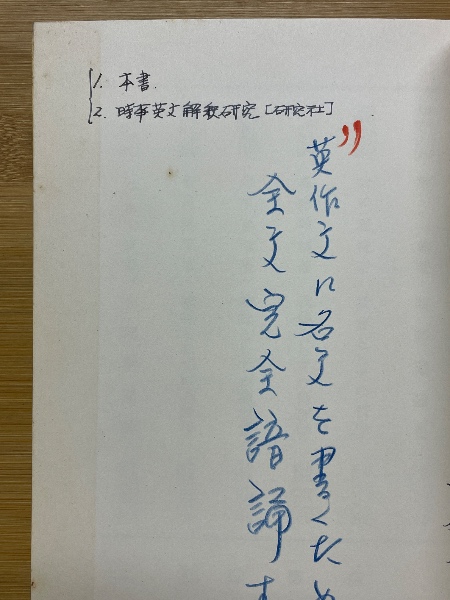 1. 本書.
2. 時事英文解釈研究 [研究社]
〃英作文に名文を書くため
全文完全諳誦す